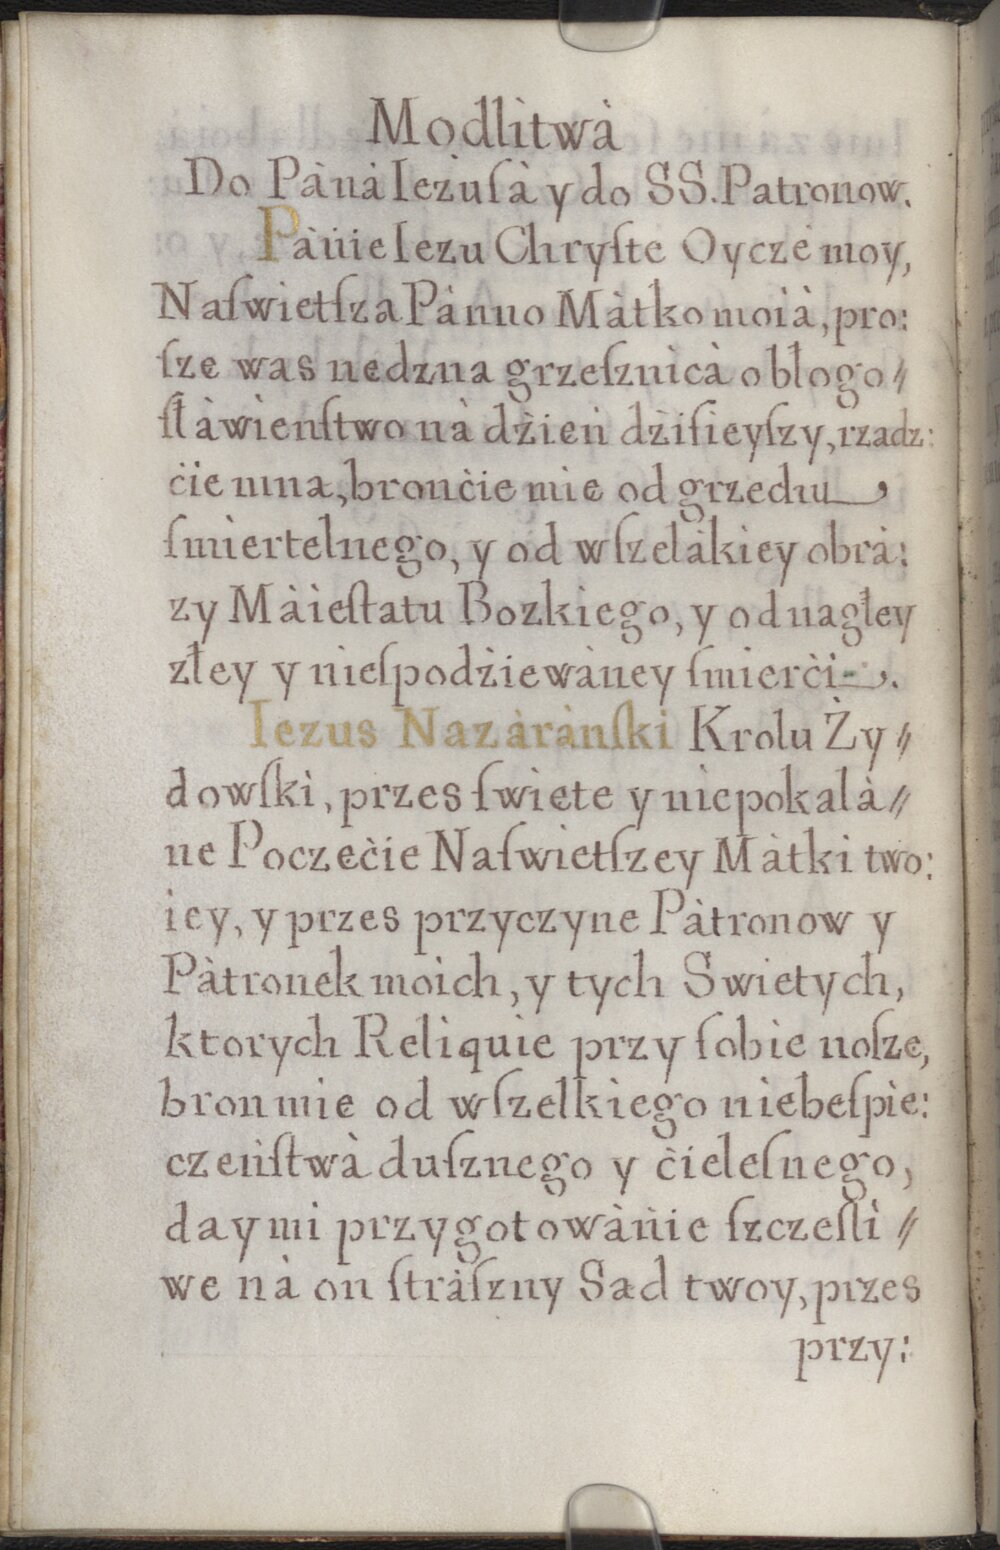 Modlitwà
Do Pànà Iezusà y do SS. Patronow.
Pànie Iezu Chryſte Oycze moy,
Naſwietſza Pànno Màtko moià, pro:
ſze was nedzna grzeſznicà o błogo//
ſłàwienſtwo nà dżień dżiſieyſzy, rzadz:
ċie mna, bronċie mie od grzechu
ſmiertelnego, y od wſzelàkiey obrà:
zy Màieſtatu Bozkiego, y od nagłey
złey y nieſpodżiewàney ſmierċi.
Iezus Nazàrànſki Krolu Ży//
dowſki, przes ſwiete y niepokalà//
ne Poczeċie Naſwietſzey Màtki two:
iey, y przes przyczyne Pàtronow y
Pàtronek moich, y tych Swietych,
ktorych Reliquie przy ſobie noſze,
bron mie od wſzelkiego niebeſpie:
czeńſtwà duſznego y ċieleſnego,
day mi przygotowànie szczeſli//
we nà on ſtràſzny Sad twoy, przes
przy: